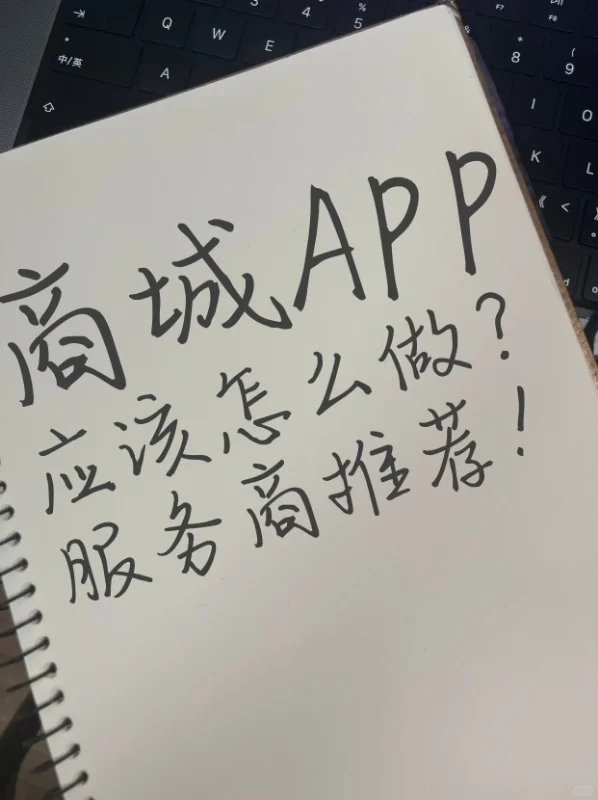 商城APP
应该怎么做？
服务商推荐！
3
4
%
5
F7
F8
Q
W
E
*
8
(
9
中/英
A
I
O
K
L
《
<